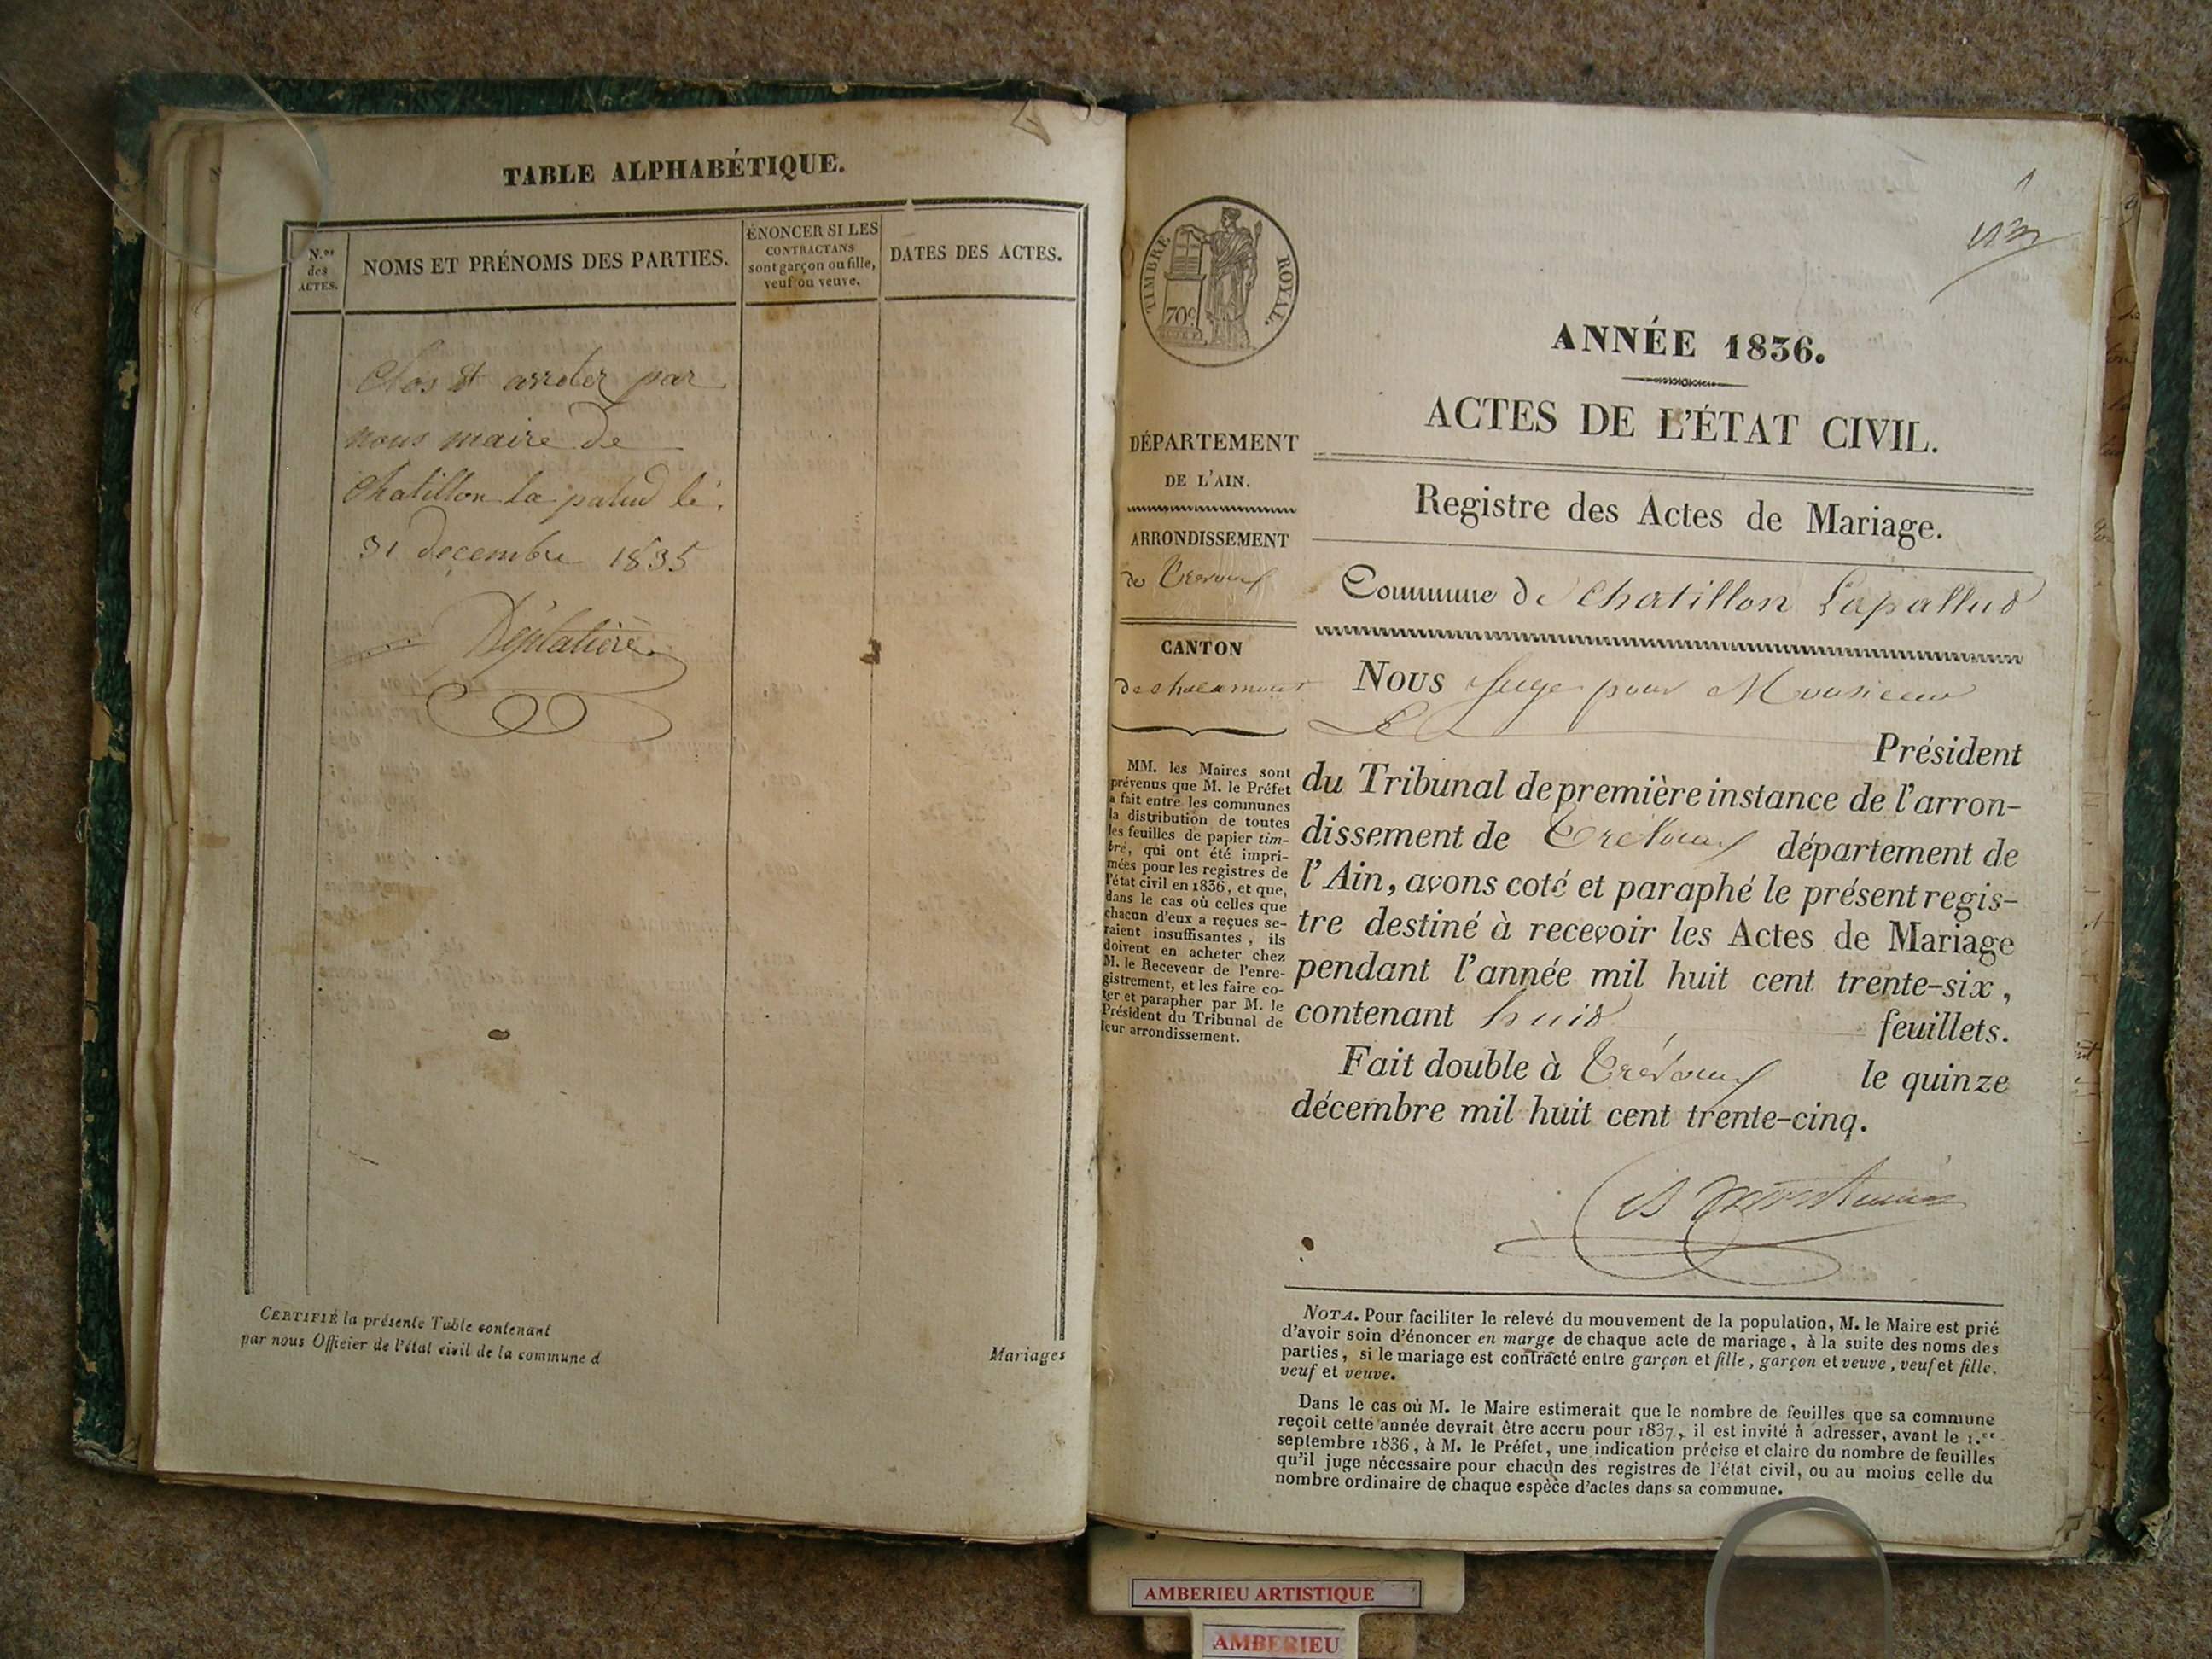 TABLE ALPHABÉTIQUE.
N.os des ACTES.
NOMS ET PRÉNOMS DES PARTIES.
ÉNONCER SI LES
CONTRACTANS
sont garçon ou fille,
veuf ou veuve.
DATES DES ACTES.
Clos et arreter par
nous maire de
Chatillon la palud le
31 decembre 1835
CERTIFIÉ la présente Table contenant
par nous Officier de l'état civil de la commune d
Mariages
TIMBRE ROYAL.
70c
ANNÉE 1836.
ACTES DE L'ÉTAT CIVIL.
DÉPARTEMENT
DE L'AIN.
ARRONDISSEMENT
de Trevoux
CANTON
de Chalamont
MM. les Maires sont
prévenus que M. le Préfet
a fait entre les communes
la distribution de toutes
les feuilles de papier tim-
bré, qui ont été impri-
mées pour les registres de
l'état civil en 1836, et que,
dans le cas où celles que
chacun d'eux a reçues se-
raient insuffisantes, ils
doivent en acheter chez
M. le Receveur de l'enre-
gistrement, et les faire co-
ter et parapher par M. le
Président du Tribunal de
leur arrondissement.
Registre des Actes de Mariage.
Commune de Chatillon Lapallud
Nous Juge pour Monsieur
Le Président
du Tribunal de première instance de l'arron-
dissement de Trevoux département de
l'Ain, avons coté et paraphé le présent regis-
tre destiné à recevoir les Actes de Mariage
pendant l'année mil huit cent trente-six,
contenant huit feuillets.
Fait double à Trévoux le quinze
décembre mil huit cent trente-cinq.
NOTA. Pour faciliter le relevé du mouvement de la population, M. le Maire est prié
d'avoir soin d'énoncer en marge de chaque acte de mariage, à la suite des noms des
parties, si le mariage est contracté entre garçon et fille, garçon et veuve, veuf et fille,
veuf et veuve.
Dans le cas où M. le Maire estimerait que le nombre de feuilles que sa commune
reçoit cette année devrait être accru pour 1837, il est invité à adresser, avant le 1.er
septembre 1836, à M. le Préfet, une indication précise et claire du nombre de feuilles
qu'il juge nécessaire pour chacun des registres de l'état civil, ou au moins celle du
nombre ordinaire de chaque espèce d'actes dans sa commune.
AMBERIEU ARTISTIQUE
AMBERIEU